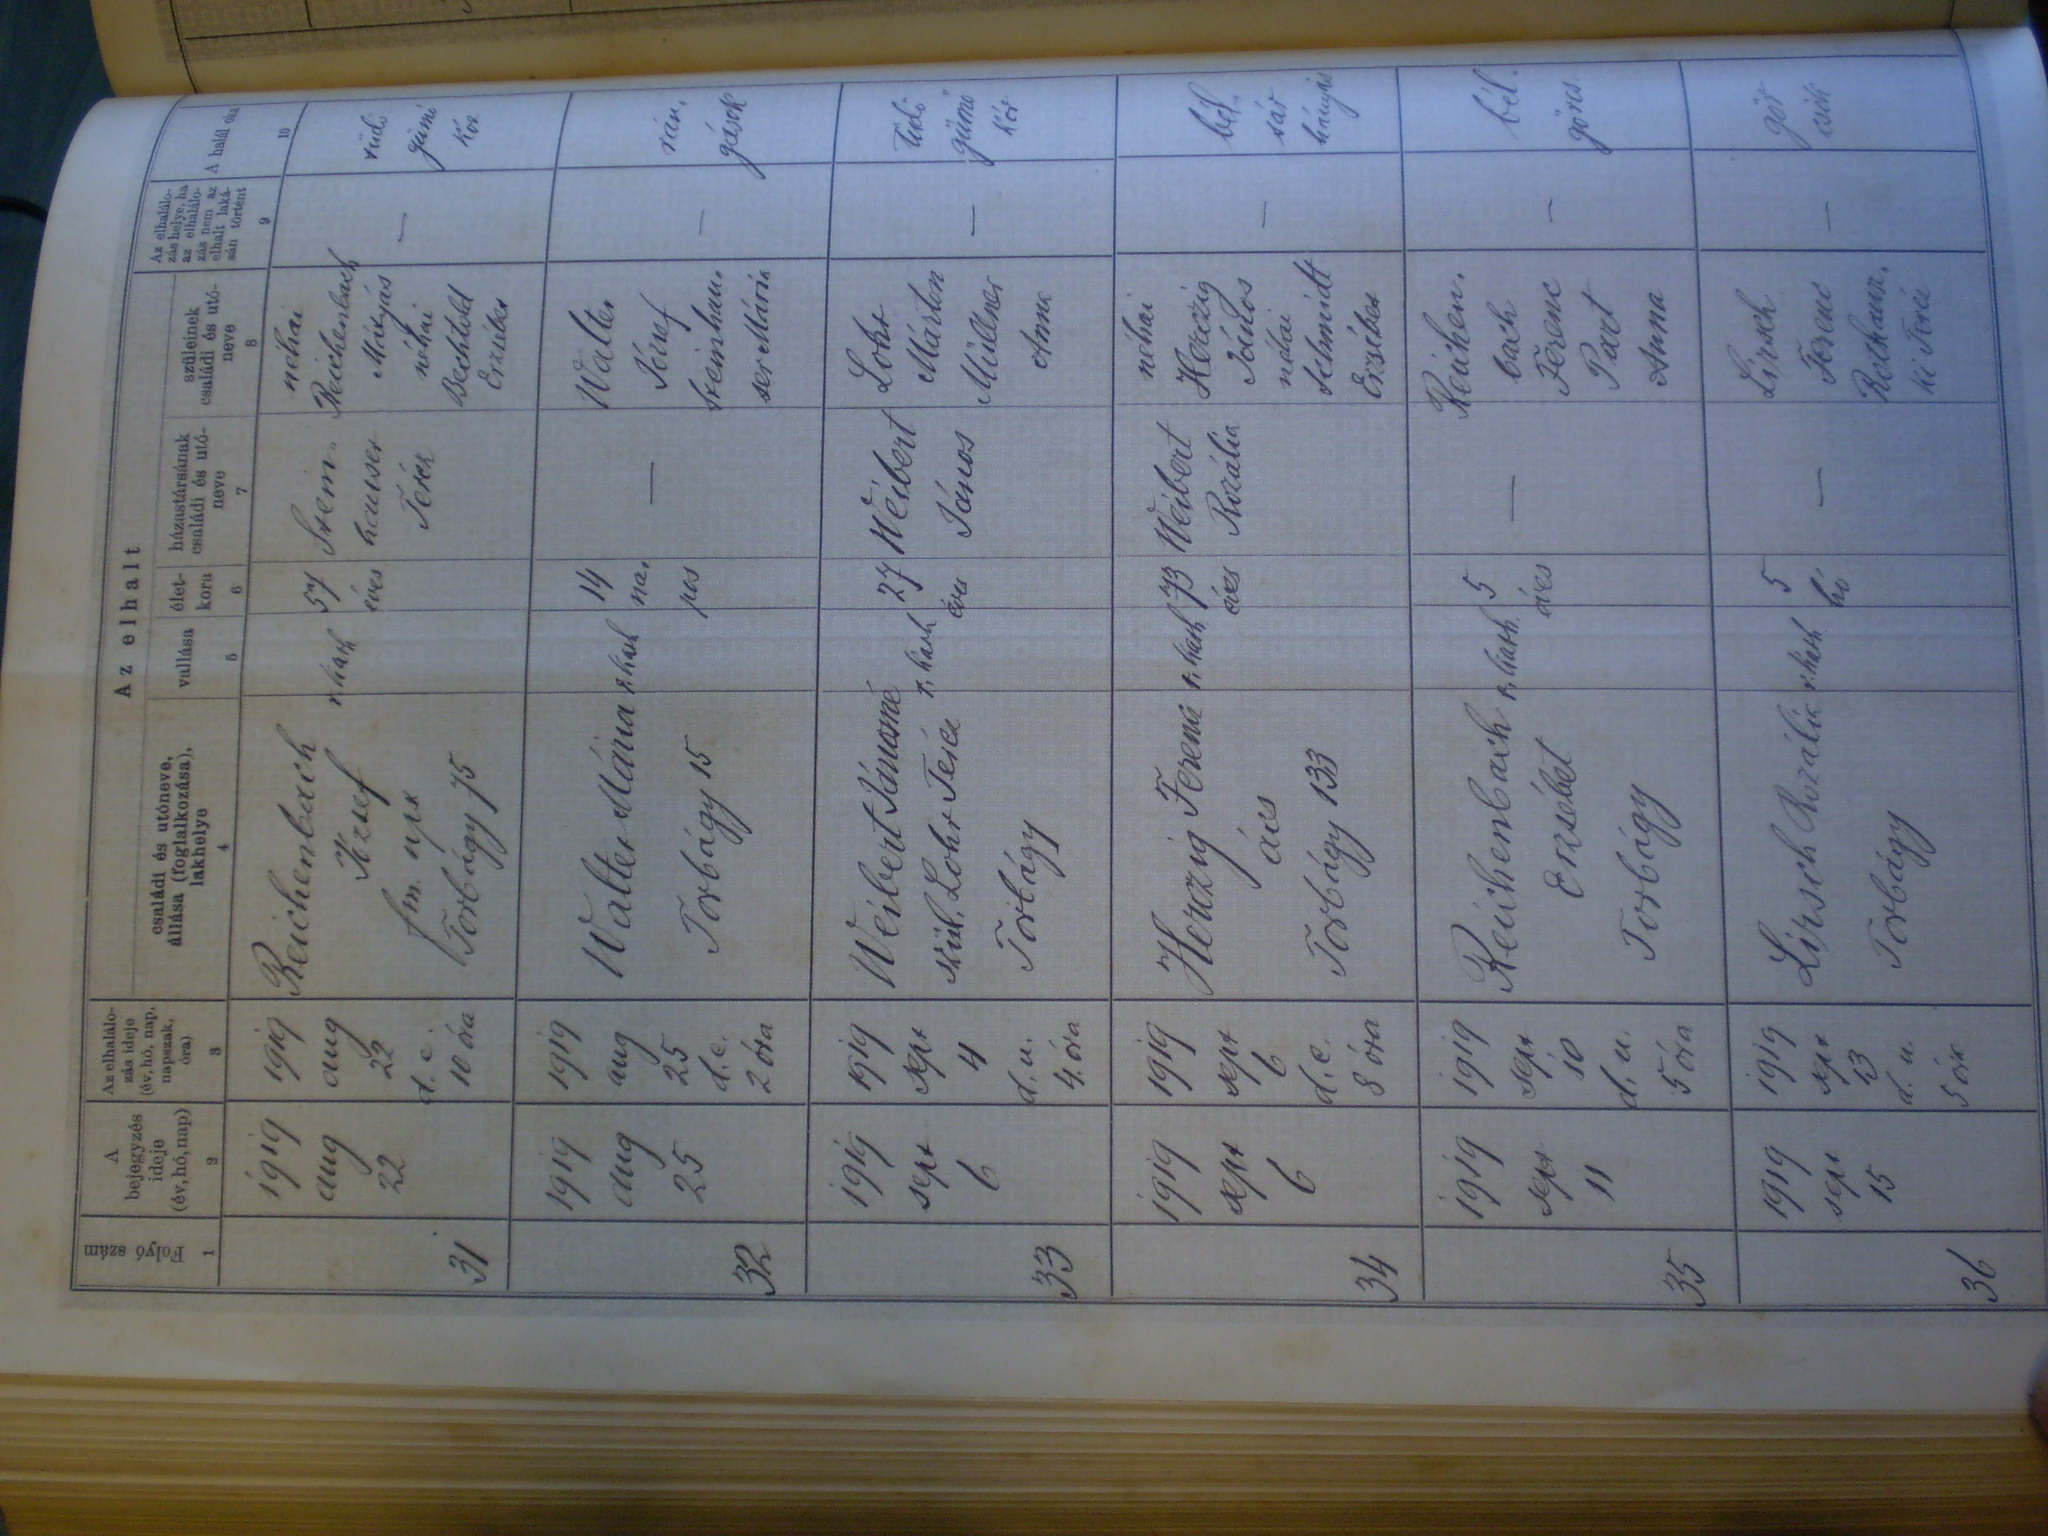 Folyó szám
1
A bejegyzés ideje (év, hó, nap)
2
Az elhalálo-
zás ideje
(év, hó, nap,
napszak,
óra)
3
Az elhalt
családi és utóneve,
állása (foglalkozása),
lakhelye
4
vallása
5
élet-
kora
6
házastársának
családi és utó-
neve
7
szüleinek
családi és utó-
neve
8
Az elhalálo-
zás helye, ha
az elhalálo-
zás nem az
elhalt laká-
sán történt
9
A halál oka
10
31
1919
aug
22
1919
aug
22
d. e.
10 óra
Reichenbach
József
fm. nps
Torbágy 75
r. kath
57
éves
Stein-
hauser
Teréz
néhai
Reichenbach
Mátyás
néhai
Bechtold
Erzsébet
—
tüdő
gümő
kór
32
1919
aug
25
1919
aug
25
d. e.
2 óra
Walter Mária
Torbágy 15
r. kath
14
na-
pos
—
Walter
József
Steinhau-
ser Mária
—
rán-
gások
33
1919
sept
6
1919
sept
4
d. u.
4 óra
Weibert Jánosné
szül. Lohr Teréz
Torbágy
r. kath
27
éves
Weibert
János
Lohr
Márton
Müllner
Anna
—
tüdő
gümő
kór
34
1919
sept
6
1919
sept
6
d. e.
8 óra
Herczig Ferencz
ács
Torbágy 133
r. kath
73
éves
Weibert
Rozália
néhai
Herczig
János
néhai
Schmidt
Erzsébet
—
bél-
sár
hányás
35
1919
sept
11
1919
sept
10
d. u.
5 óra
Reichenbach
Erzsébet
Torbágy
r. kath
5
éves
—
Reichen-
bach
Ferenc
Part
Anna
—
bél-
görcs
36
1919
sept
15
1919
sept
13
d. u.
5 óra
Lirsch Rozália
Torbágy
r. kath
5
hó
—
Lirsch
Ferenc
Rothau-
Teréz
—
gör
csök